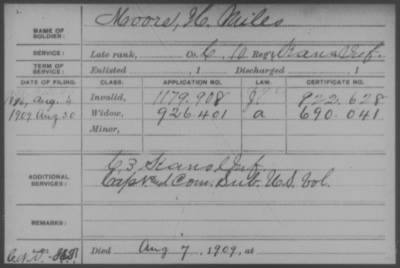 NAME OF SOLDIER: Moore, H. Miles
SERVICE: Late rank, Co. C, 10 Reg't Kans Inf.
TERM OF SERVICE: Enlisted , 1 Discharged , 1
DATE OF FILING. CLASS. APPLICATION NO. LAW. CERTIFICATE NO.
Aug. Invalid, 1179.908 J. 922.628
1909 Aug 30 Widow, 926.401 a 690.041
Minor,
ADDITIONAL SERVICES: C, 3 Kans. Inf.
Capt and Com. Sub. U.S. Vol.
REMARKS:
Died Aug 7, 1909, at